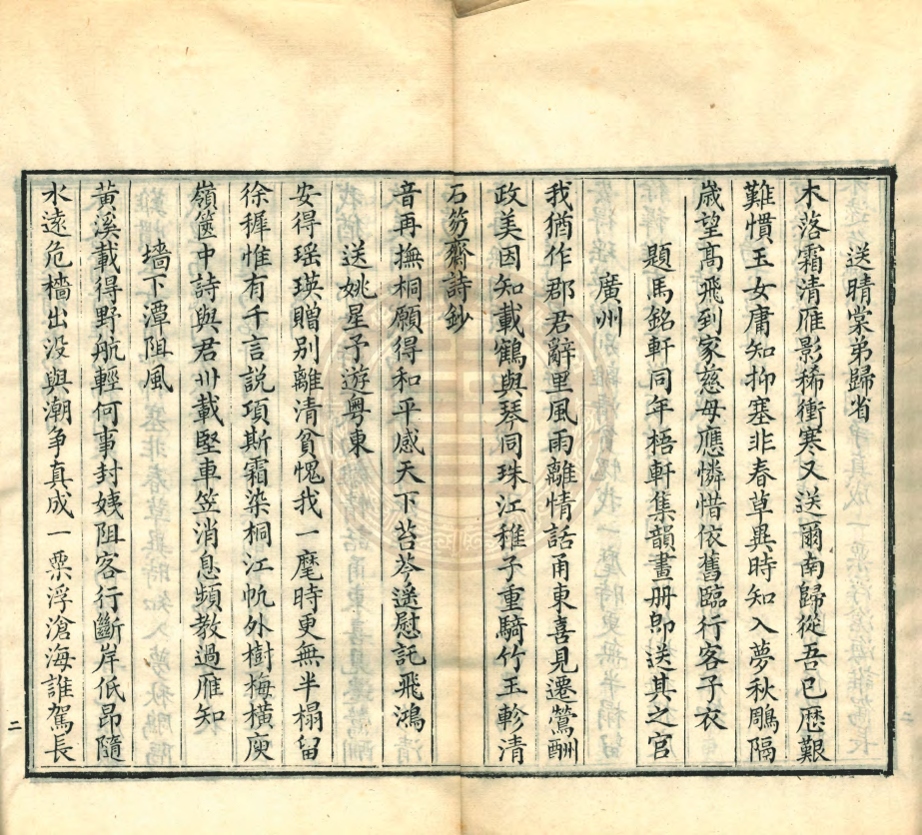 送晴棠弟歸省
木落霜清雁影稀衝寒又送爾南歸從吾已歷艱
難慣玉女庸知抑塞非春草異時知入夢秋鵰隔
歲望高飛到家慈母應憐惜依舊臨行客子衣
題馬銘軒同年梧軒集韻畫册卽送其之官
廣州
我猶作郡君辭里風雨離情話甬東喜見遷鶯酬
政美因知載鶴與琴同珠江稚子重騎竹玉軫清
石笏齋詩鈔
音再撫桐願得和平感天下苔岑遙慰託飛鴻
送姚星予遊粵東
安得瑶瑛贈别離清貧愧我一麾時更無半榻留
徐穉惟有千言説項斯霜染桐江帆外樹梅横庾
嶺篋中詩與君卅載堅車笠消息頻教過雁知
墻下潭阻風
黄溪載得野航輕何事封姨阻客行斷岸低昂隨
水遠危檣出没與潮争真成一粟浮滄海誰駕長
二